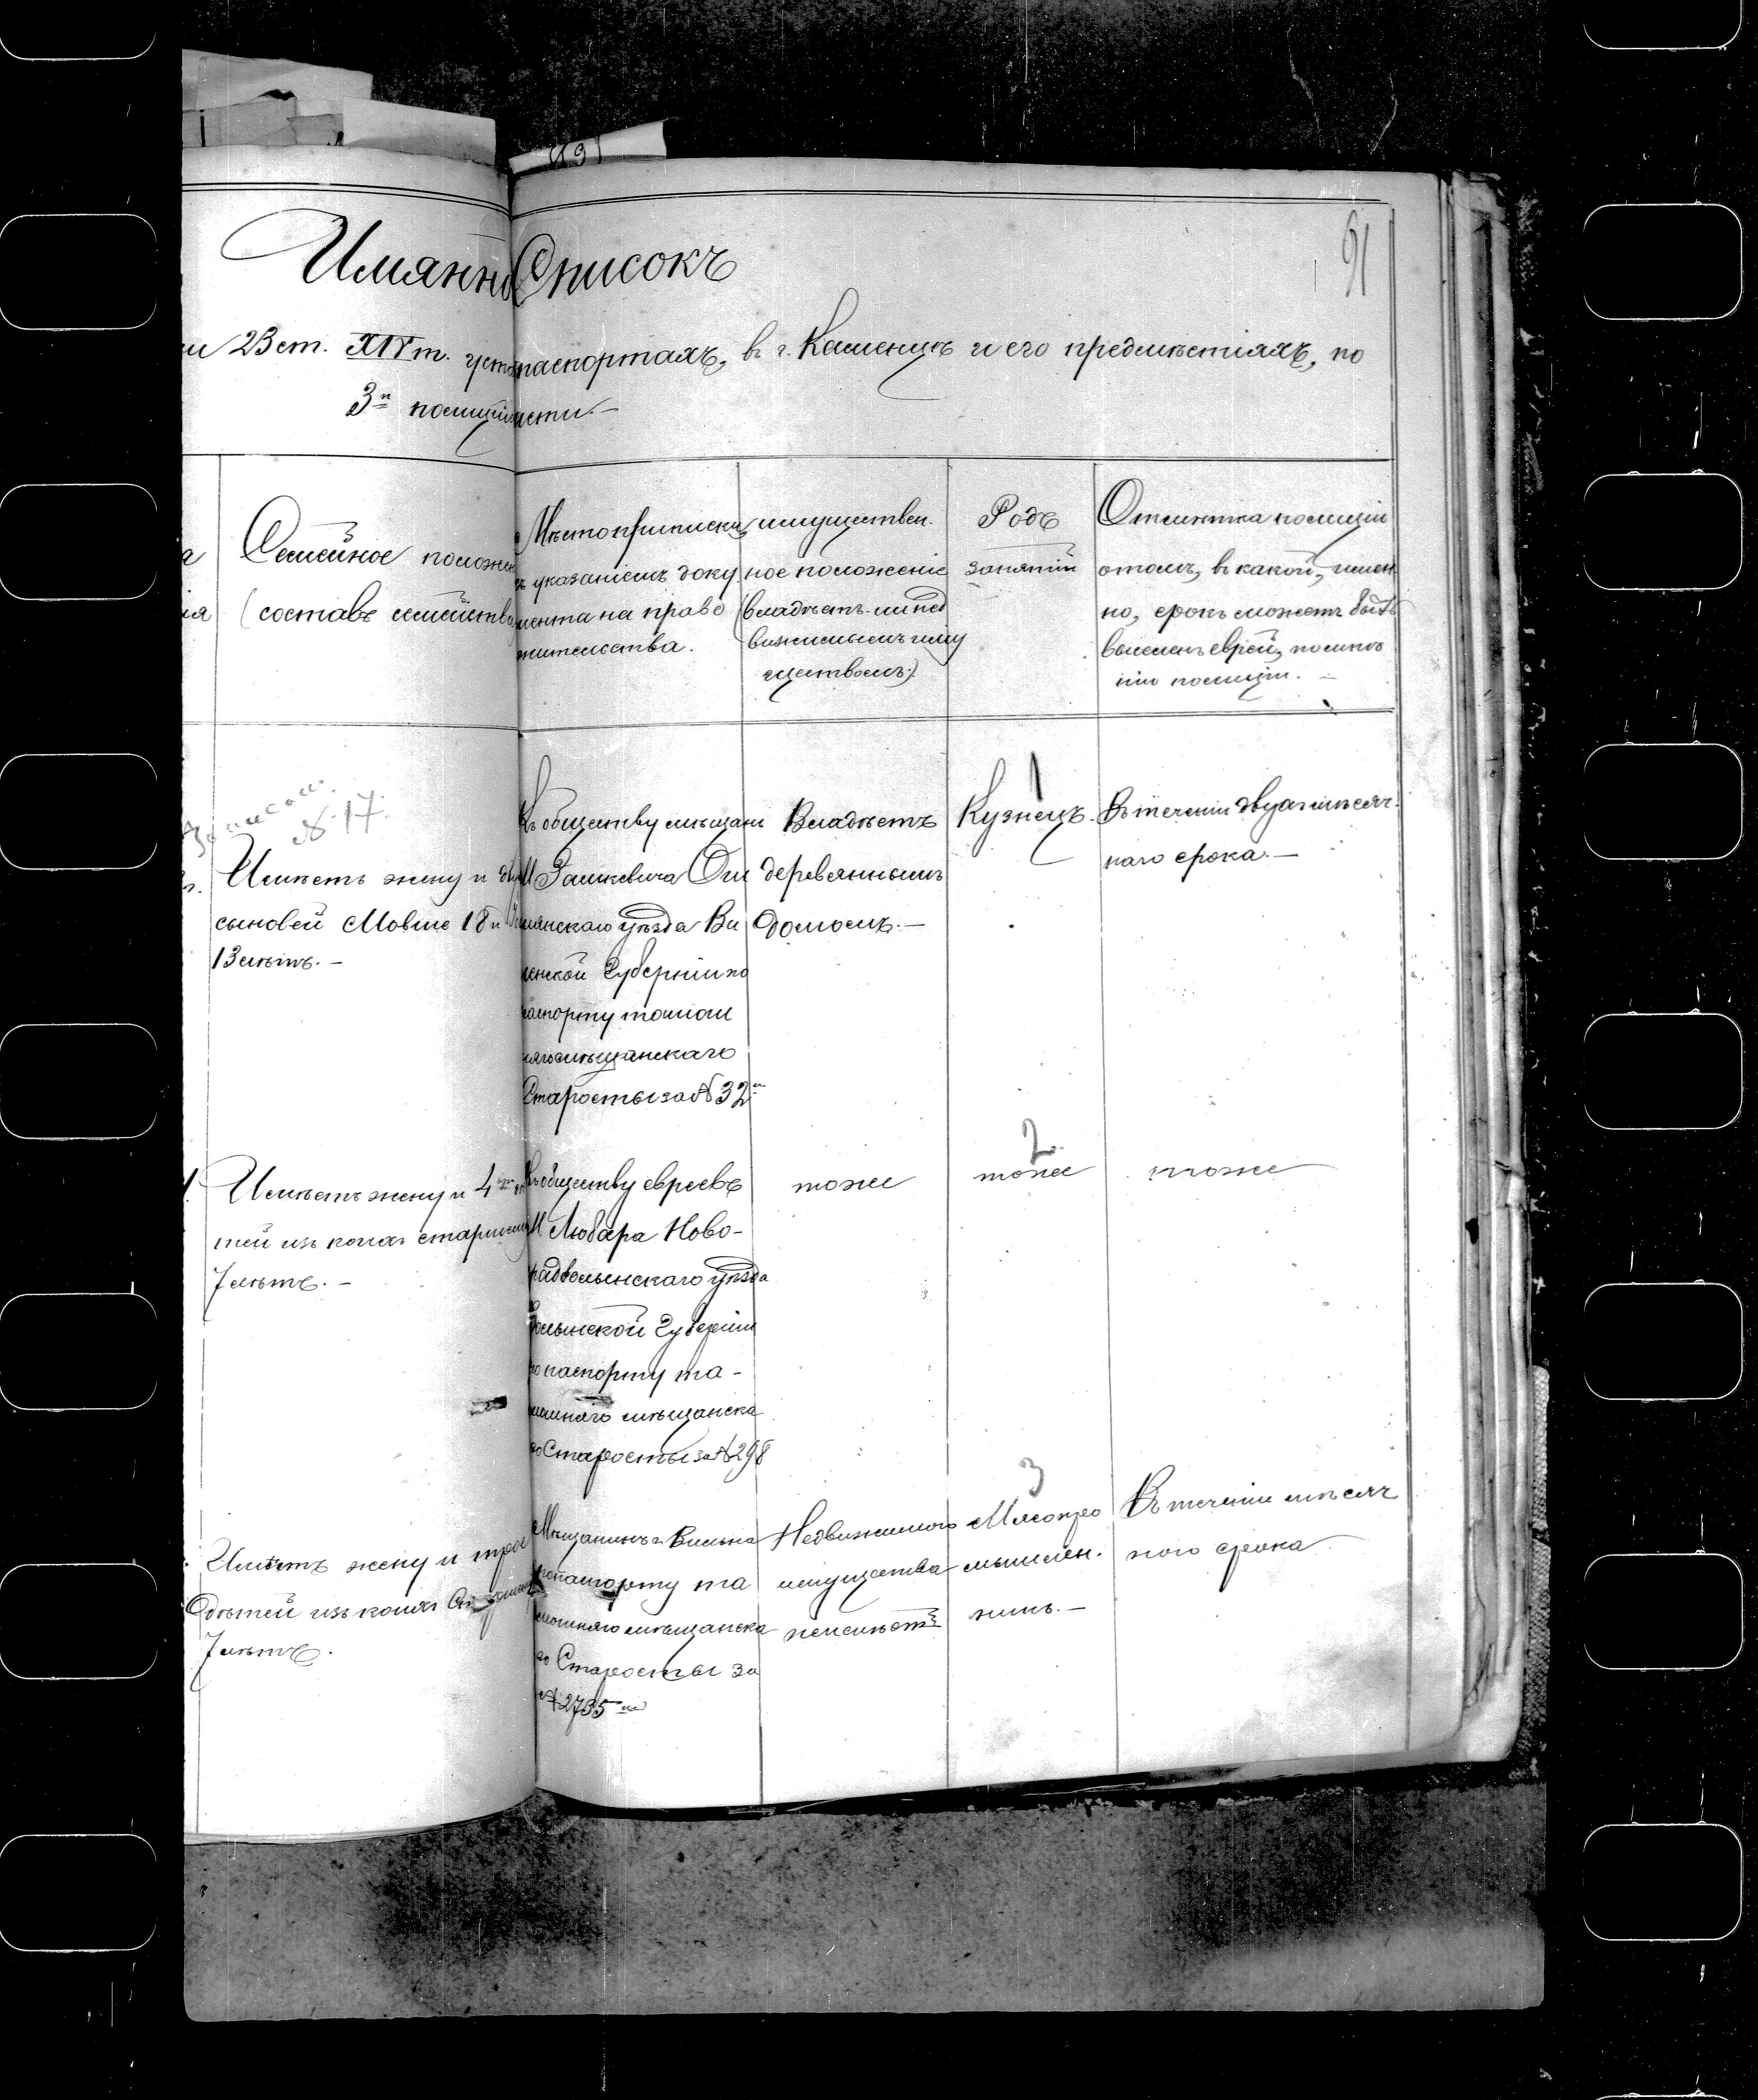 119
91
Имянно Списокъ
23 ст. XIV т. уста паспортахъ, въ г. Каменцѣ и его предмѣстіяхъ, по
3й полиції части.—
Семейное положе
(составъ семейства
Мѣсто приписки
съ указаніемъ доку
мента на право
жительства.
имуществен.
ное положеніе
(владѣетъ-ли нед
вижимымъ иму
ществомъ).
Родъ
занятій
Отмѣтка полиціи
о томъ, въ какой, имен
но, срокъ можетъ быть
выселенъ еврей, по мнѣ
нію полиціи.—
№ 17.
Имѣетъ жену и
сыновей Мовше 18 и
13 лѣтъ.—
Къ обществу мѣщанъ
М Зашкевича Ош
мянскаго уѣзда Ви
ленской Губерніи по
паспорту тамош
няго мѣщанскаго
Старосты за № 32
Владѣетъ
деревяннымъ
домомъ.—
1
Кузнецъ.
Въ теченіи двухмѣсяч.
наго срока.—
Имѣетъ жену и 4
тей изъ коихъ старшему
7 лѣтъ.—
Къ обществу евреевъ
М Любара Ново-
градволынскаго уѣзда
Волынской Губерніи
по паспорту та-
мошняго мѣщанска
го Старосты за № 298
тоже
2
тоже
тоже
Имѣетъ жену и трое
дѣтей изъ коихъ
7 лѣтъ.
Мѣщанинъ г. Вильна
по паспорту та
мошняго мѣщанска
го Старосты за
№ 2735
Недвижимаго
имущества
неимѣетъ
3
Мясопро
мышлен.
никъ.—
Въ теченіи мѣсяч
наго срока